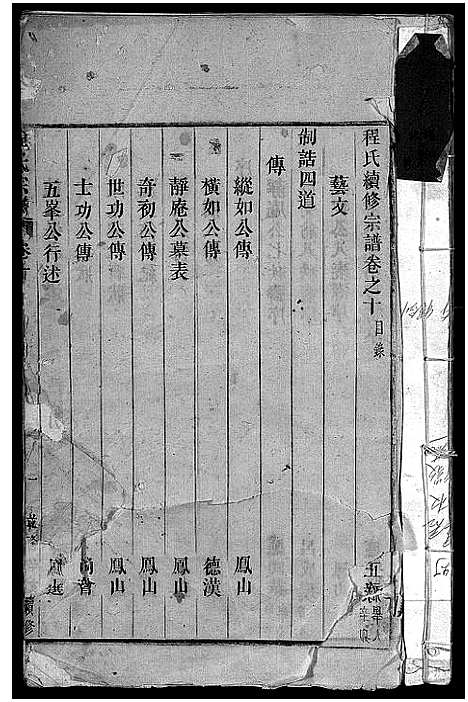 程氏續修宗譜卷之十目錄
藝文
制誥四道
傳
縱如公傳 鳳山
橫如公傳 德漢
靜庵公墓表 鳳山
奇初公傳 鳳山
世功公傳 鳳山
士功公傳
五峯公行述
續修